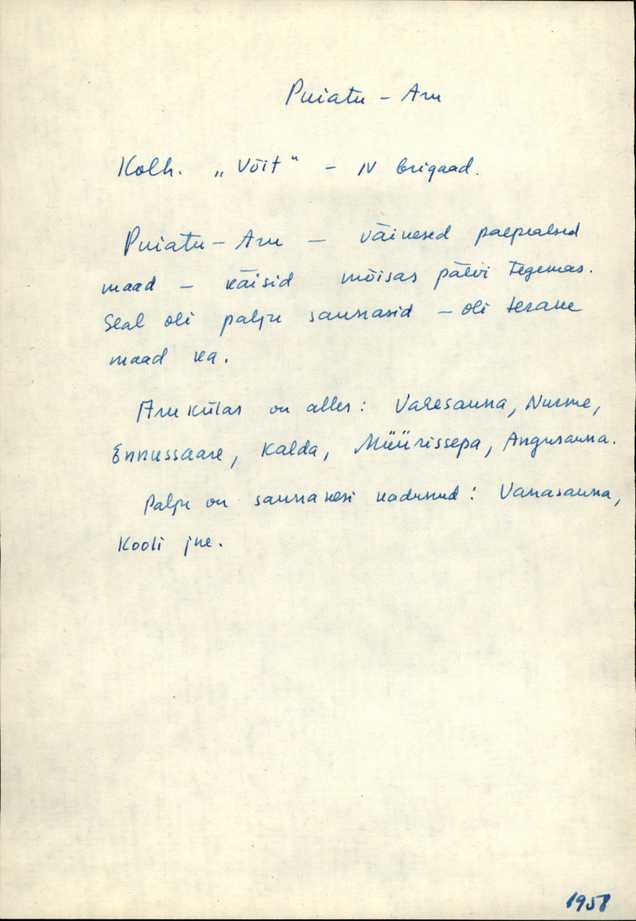 Puiatu – Aru
Kolh. „Võit" – IV brigaad.
Puiatu – Aru – väinesed paepealsed
maad – käisid mõisas päevi tegemas.
Seal oli palju saunasid – oli terane
maad ka.
Aru külas on alles: Varesauna, Nurme,
Ennussaare, Kalda, Müürissepa, Angersauna.
Palju on saunakesi kadunud: Vanasauna,
Kooli jne.
1958